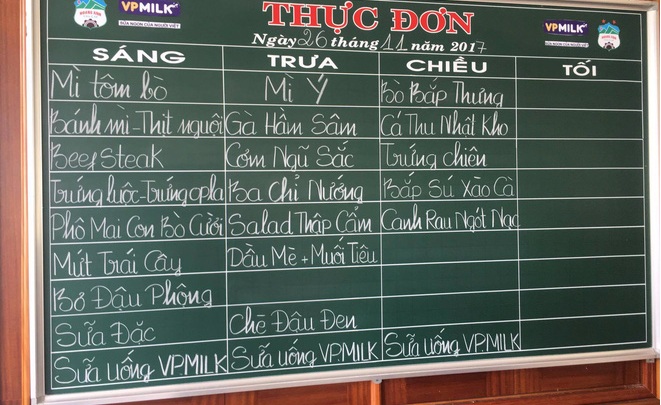 VPMILK
SỮA NGON CỦA NGƯỜI VIỆT
THỰC ĐƠN
VPMILK
Ngày 26 tháng 11 năm 2017
SÁNG TRƯA CHIỀU TỐI
Mì tôm bò Mì Ý Bò Bắp Thưng
Bánh mì-Thịt nguội Gà Hầm Sâm Cá Thu Nhật Kho
Beefsteak Cơm Ngũ Sắc Trứng chiên
Trứng luộc-Trứng opla Ba Chỉ Nướng Bắp Sú Xào Cà
Phô Mai Con Bò Cười Salad Thập Cẩm Canh Rau Ngót Nạc
Mứt Trái Cây Dầu Mè + Muối Tiêu
Bơ Đậu Phộng
Sữa Đặc Chè Đậu Đen
Sữa uống VPMILK Sữa uống VPMILK Sữa uống VPMILK